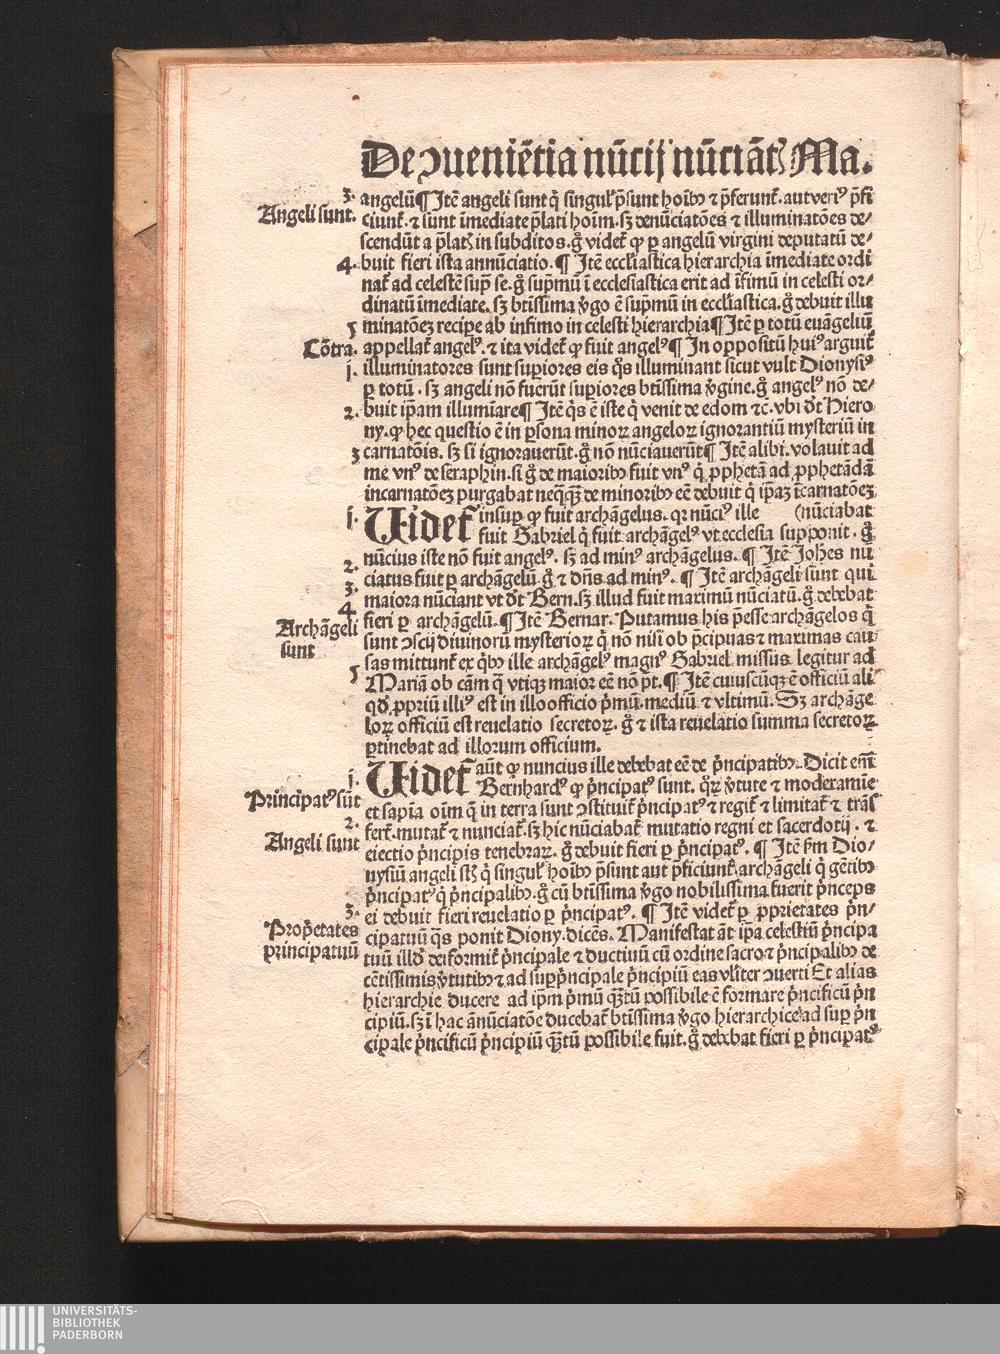 De ꝯueniētia nūcij nūciāt͛ Ma.
3. angelū¶ Itē angeli sunt q̇ singul̕ p̄sunt hoīb⁹ ⁊ p̄ferunt̕. aut veri⁹ p̄fi
Angeli sunt. ciunt̕. ⁊ sunt īmediate p̄lati hoīm. sꝫ denūciatōes ⁊ illuminatōes de/
scendūt a p̄lat͛ in subditos. g̊ videt̕ ꝙ ꝑ angelū virgini deputatū de/
4. buit fieri ista annūciatio. ¶ Itē eccl̕iastica hierarchia īmediate ordi
nat̕ ad celestē sup̄ se. g̊ sup̄mū ī ecclesiastica erit ad īfimū in celesti or/
dinatū īmediate. sꝫ btīssima v̕go ē sup̄mū in eccl̕iastica. g̊ debuit illu
5 minatōeꝫ recipe ab infimo in celesti hierarchia¶ Itē ꝑ totū euāgeliū
Cōtra. appellat̕ angel⁹. ⁊ ita videt̕ ꝙ fuit angel⁹¶ In oppositū hui⁹ arguit̕
j. illuminatores sunt supiores eis q̊s illuminant sicut vult Dionysi⁹
ꝑ totū. sꝫ angeli nō fuerūt supiores btīssima v̕gine. g̊ angel⁹ nō de/
2. buit ip̄am illumīare¶ Itē q̇s ē iste q̇ venit de edom ⁊c̄. vbi d̕t Hiero
ny. ꝙ hec questio ē in ꝑsona minoꝝ angeloꝝ ignorantiū mysteriū in
3 carnatōis. sꝫ si ignorauerūt. g̊ nō nūciauerūt¶ Itē alibi. volauit ad
me vn⁹ de seraphin. si g̊ de maiorib⁹ fuit vn⁹ q̇ ꝓphetā ad ꝓphetādā
incarnatōeꝫ purgabat neqq̄ꝫ de minorib⁹ eē debuit q̇ ip̄aꝫ īcarnatōeꝫ
j. Uidet̕ insuꝑ ꝙ fuit archāgelus. qꝛ nūci⁹ ille (nūciabat
fuit Gabriel q̇ fuit archāgel⁹ vt ecclesia supponit. g̊
nūcius iste nō fuit angel⁹. sꝫ ad min⁹ archāgelus. ¶ Itē Joh̄es nū
2. ciatus fuit ꝑ archāgelū. g̊ ⁊ dn̄s ad min⁹. ¶ Itē archāgeli sunt qui
3. maiora nūciant vt d̕t Bern. sꝫ illud fuit maximū nūciatū. g̊ debebat
4 fieri ꝑ archāgelū. ¶ Itē Bernar. Putamus his p̄esse archāgelos q̇
Archāgeli sunt ꝯscij diuinorū mysterioꝝ q̇ nō nisi ob p̄cipuas ⁊ maximas cau/
sunt sas mittunt̕ ex q̇b⁹ ille archāgel⁹ magn⁹ Gabriel missus legitur ad
5 Mariā ob cām q̄ vtiqꝫ maior eē nō pt̄. ¶ Itē cuiuscūqꝫ ē officiū ali
qd̕ ꝓpriū illi⁹ est in illo officio p̄mū. mediū ⁊ vltimū. Sꝫ archāge
loꝝ officiū est reuelatio secretoꝝ. g̊ ⁊ ista reuelatio summa secretoꝝ
ꝑtinebat ad illorum officium.
j. Uidet̕ aūt ꝙ nuncius ille debebat eē de ṗncipatib⁹. Dicit em̄
Principat⁹ sūt Bernhard⁹ ꝙ ṗncipat⁹ sunt. q̊ꝝ v̕tute ⁊ moderamīe
et sapīa oīm q̄ in terra sunt ꝯstituit̕ ṗncipat⁹ ⁊ regit̕ ⁊ limitat̕ ⁊ trās
2. fert̕. mutat̕ ⁊ nunciat̕. sꝫ hic nūciabat̕ mutatio regni et sacerdotij. ⁊
Angeli sunt eiectio ṗncipis tenebraꝝ. g̊ debuit fieri ꝑ ṗncipat⁹. ¶ Itē ẜm Dio/
nysiū angeli st̄ q̇ singul̕ hoīb⁹ p̄sunt aut p̄ficiunt̕. archāgeli q̇ gētib⁹
ṗncipat⁹ q̇ ṗncipalib⁹. g̊ cū btīssima v̕go nobilissima fuerit ṗnceps
3. ei debuit fieri reuelatio ꝑ ṗncipat⁹. ¶ Itē videt̕ ꝑ ꝓprietates ṗn/
Prop̄etates cipatuū q̊s ponit Diony. dicēs. Manifestat āt ip̄a celestiū ṗncipa
principatuū tuū illd̕ deiformit̕ ṗncipale ⁊ ductiuū cū ordine sacro ⁊ ṗncipalib⁹ de
cētissimis v̕tutib⁹ ⁊ ad supṗncipale ṗncipiū eas vl̕iter ꝯuerti Et alias
hierarchie ducere ad ip̄m p̄mū q̄ꝫtū possibile ē formare ṗncificū ṗn
cipiū. sꝫ ī hac ānūciatōe ducebat̕ btīssima v̕go hierarchice ad suꝑ ṗn
cipale ṗncificū ṗncipiū q̄ꝫtū possibile fuit. g̊ debebat fieri ꝑ ṗncipat⁹
UNIVERSITÄTS-
BIBLIOTHEK
PADERBORN